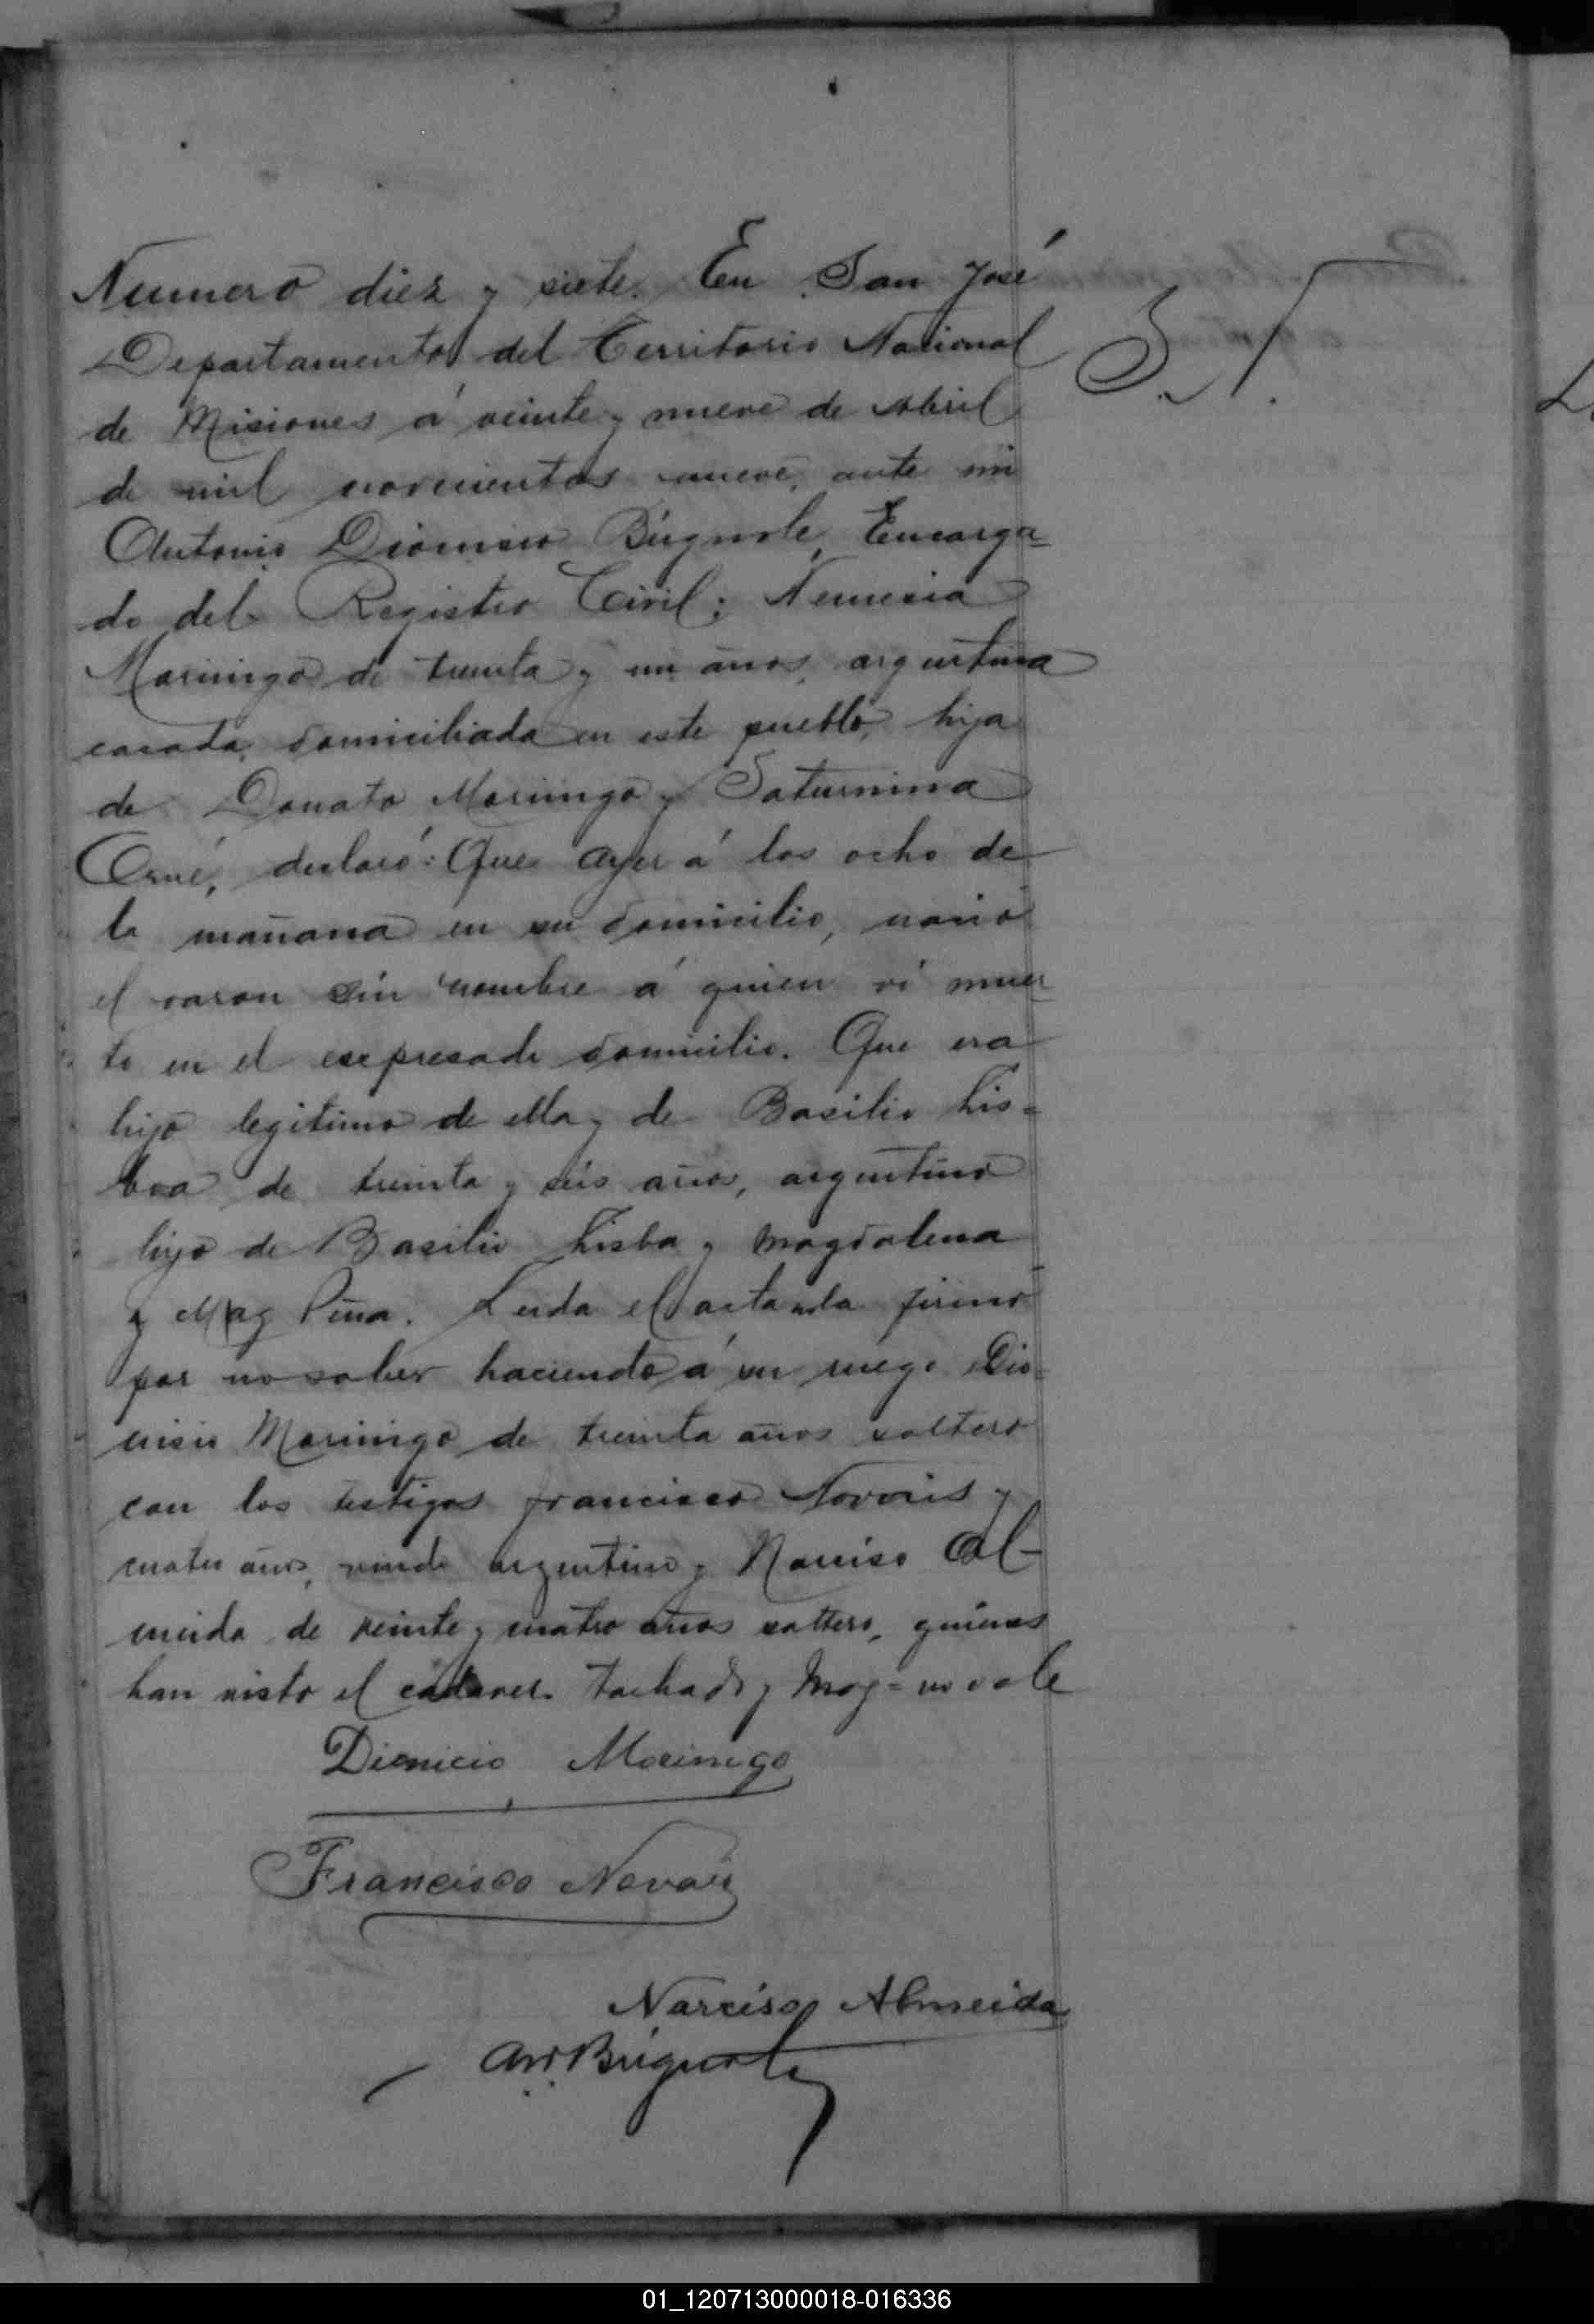 Numero diez y siete. En San José
Departamento del Territorio Nacional
de Misiones á veinte y nueve de Abril
de mil novecientos nueve, ante mi
Antonio Dionisio Búgnole, Encarga=
do del Registro Civil; Nemesia
Moringo de treinta y un años, argentina
casada, domiciliada en este pueblo, hija
de Donato Moringo y Saturnina
declaró: Que ayer á las ocho de
la mañana en su domicilio, nació
el varon sin nombre á quien ví muer
to en el expresado domicilio. Que era
hijo legitimo de ella y de Basilio Lis=
boa de treinta y seis años, argentino
hijo de Basilio Lisba y Magdalena
y Mag Pina. Leida el acta no la firmó
por no saber haciendo á su ruego Dio=
nisio Moringo de treinta años soltero
con los testigos Francisco Novais y
cuatro años, viudo argentino y Narciso Al-
meida de veinte y cuatro años soltero, quienes
han visto el cadaver. Tachado y Mag = no vale
Dionicio Morinigo
Francisco Novais
Narciso Almeida
01_120713000018-016336